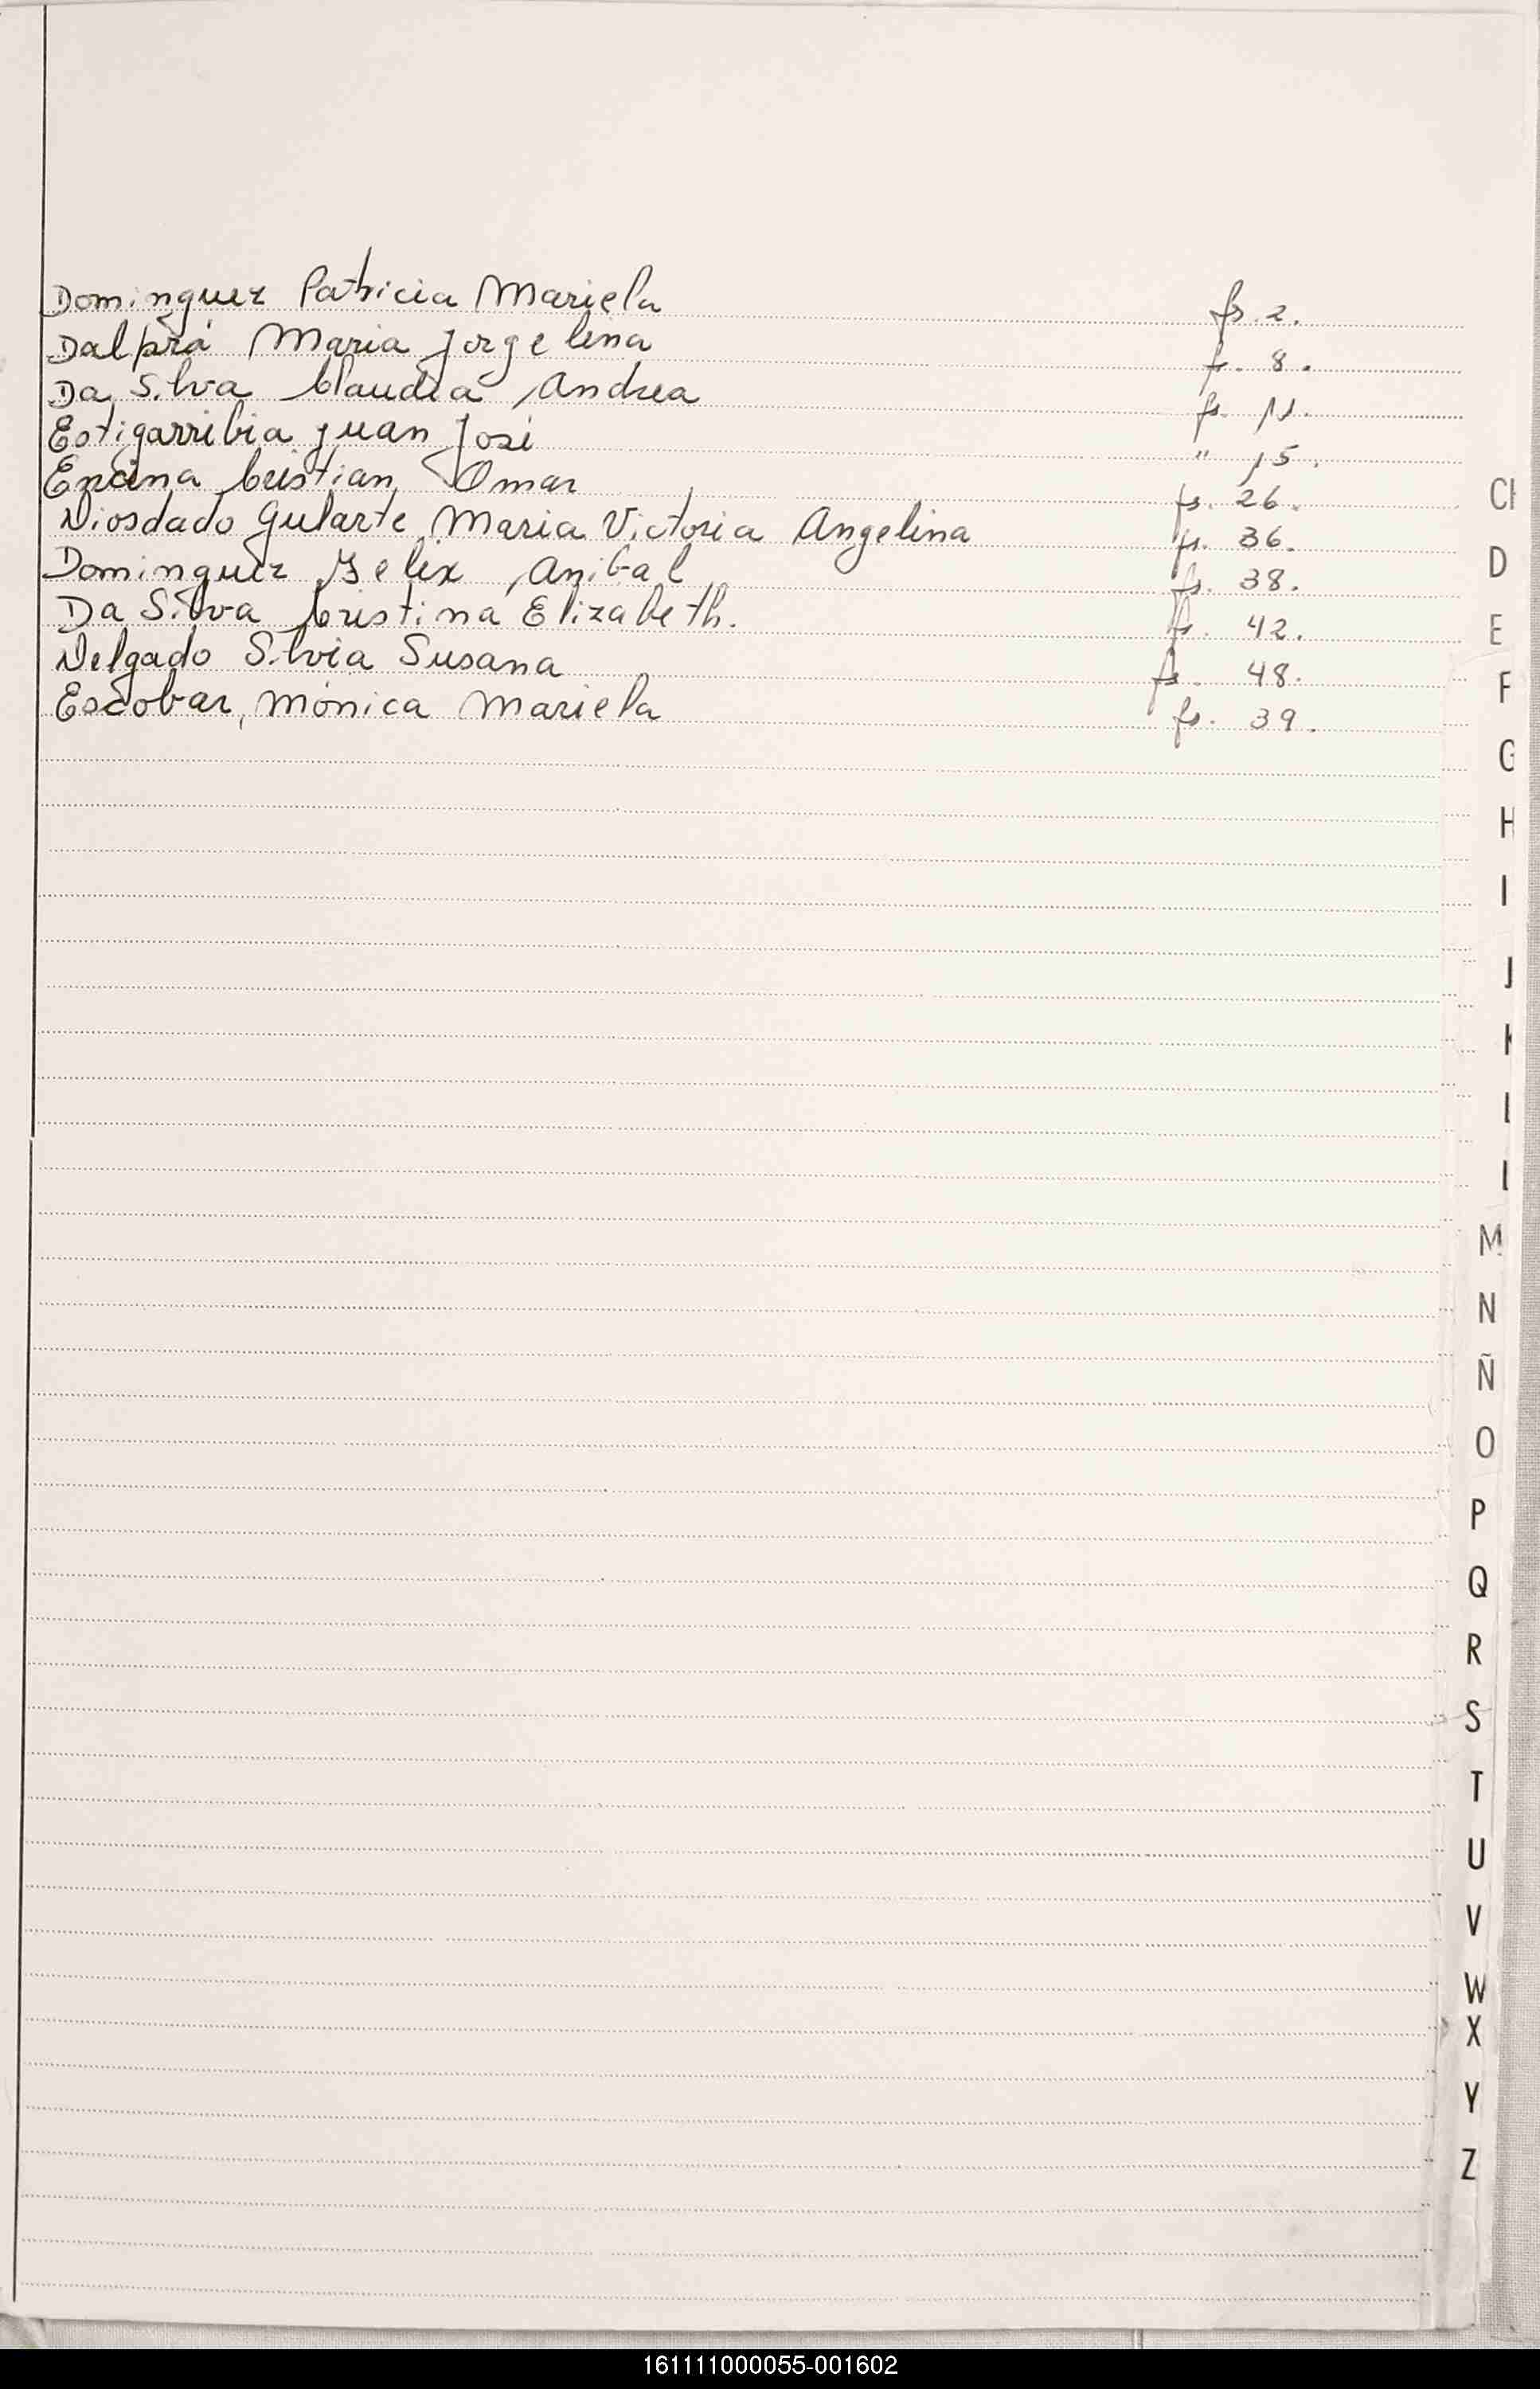 Dominguez Patricia Mariela fs. 2.
Dalprá Maria Jorgelina fs. 8.
Da Silva Claudia Andrea fs. 11.
Estigarribia Juan José " 15.
Encina Cristian Omar fs. 26.
Diosdado Gularte Maria Victoria Angelina fs. 36.
Dominguez Felix Anibal fs. 38.
Da Silva Cristina Elizabeth. fs. 42.
Delgado Silvia Susana fs. 48.
Escobar, Mónica Mariela fs. 39.
CH
D
E
F
G
H
I
J
K
L
M
N
Ñ
O
P
Q
R
S
T
U
V
W
X
Y
Z
161111000055-001602